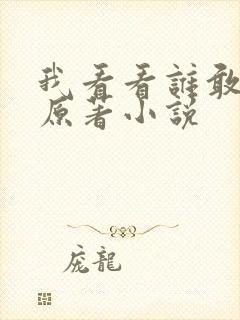 我看看誰敢
原著小説
庞龍